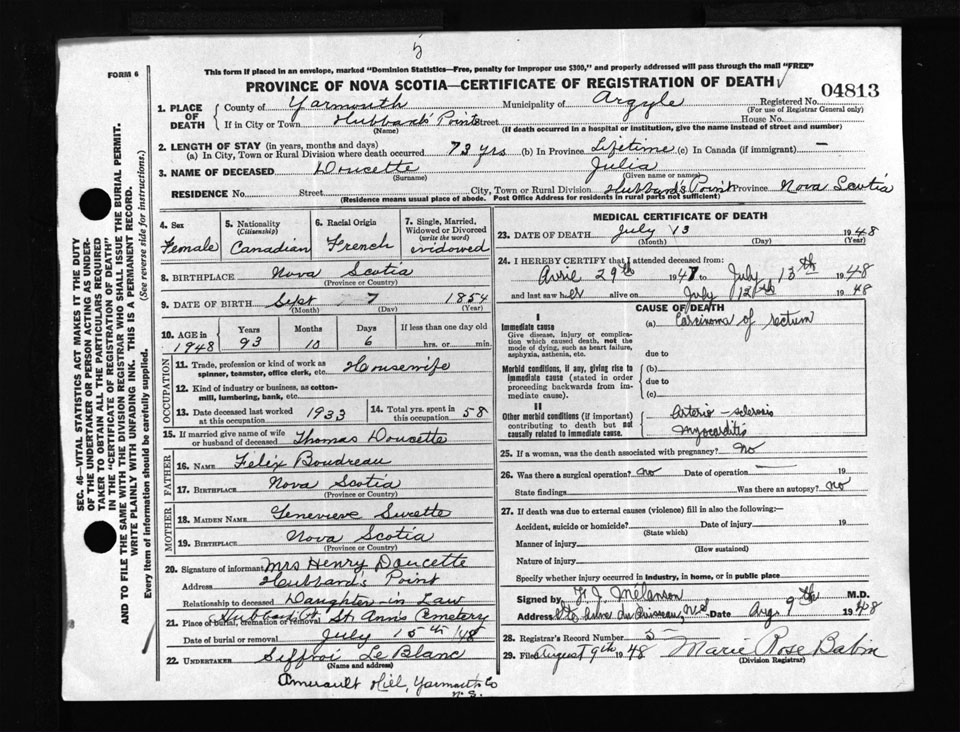 5
This form if placed in an envelope, marked "Dominion Statistics—Free, penalty for improper use $300," and properly addressed will pass through the mail "FREE"
FORM 6
PROVINCE OF NOVA SCOTIA—CERTIFICATE OF REGISTRATION OF DEATH
04813
1. PLACE OF DEATH County of Yarmouth Municipality of Argyle Registered No.
(For use of Registrar General only)
If in City or Town Hubbard's Point Street House No.
(Name) (If death occurred in a hospital or institution, give the name instead of street and number)
2. LENGTH OF STAY (in years, months and days)
(a) In City, Town or Rural Division where death occurred 73 yrs (b) In Province Lifetime (c) In Canada (if immigrant) —
3. NAME OF DECEASED Doucette Julia
(Surname) (Given name or names)
RESIDENCE No. Street City, Town or Rural Division Hubbard's Point Province Nova Scotia
(Residence means usual place of abode. Post Office Address for residents in rural parts not sufficient)
4. Sex Female
5. Nationality (Citizenship) Canadian
6. Racial Origin French
7. Single, Married, Widowed or Divorced (write the word) widowed
8. BIRTHPLACE Nova Scotia
(Province or Country)
9. DATE OF BIRTH Sept 7 1854
(Month) (Day) (Year)
10. AGE in 1948 Years 93 Months 10 Days 6 If less than one day old hrs. or min.
OCCUPATION
11. Trade, profession or kind of work as spinner, teamster, office clerk, etc. Housewife
12. Kind of industry or business, as cotton-mill, lumbering, bank, etc.
13. Date deceased last worked at this occupation 1933
14. Total yrs. spent in this occupation 58
15. If married give name of wife or husband of deceased Thomas Doucette
FATHER
16. NAME Felix Boudreau
17. BIRTHPLACE Nova Scotia
(Province or Country)
MOTHER
18. MAIDEN NAME Genevieve Surette
19. BIRTHPLACE Nova Scotia
(Province or Country)
20. Signature of informant Mrs Henry Doucette
Address Hubbard's Point
Relationship to deceased Daughter-in Law
21. Place of burial, cremation or removal Hubbard's Pt St. Ann's Cemetery
Date of burial or removal July 15th /48
22. UNDERTAKER Siffroi Le Blanc
(Name and address)
Amirault Hill, Yarmouth Co
N.S.
MEDICAL CERTIFICATE OF DEATH
23. DATE OF DEATH July 13 1948
(Month) (Day) (Year)
24. I HEREBY CERTIFY that I attended deceased from:
Avril 29th 1947 to July 13th 1948
and last saw her alive on July 12th 1948
CAUSE OF DEATH
I
Immediate cause
Give disease, injury or complication which caused death, not the mode of dying, such as heart failure, asphyxia, asthenia, etc.
(a) Carcinoma of rectum
due to
Morbid conditions, if any, giving rise to immediate cause (stated in order proceeding backwards from immediate cause).
(b)
due to
(c)
II
Other morbid conditions (if important) contributing to death but not causally related to immediate cause.
Arterio-sclerosis
Myocarditis
25. If a woman, was the death associated with pregnancy? No
26. Was there a surgical operation? No Date of operation — 19
State findings Was there an autopsy? No
27. If death was due to external causes (violence) fill in also the following:—
Accident, suicide or homicide? Date of injury 19
(State which)
Manner of injury
(How sustained)
Nature of injury
Specify whether injury occurred in industry, in home, or in public place
Signed by F. J. Mélanson M.D.
Address Ste Anne du Ruisseau, N.S. Date Aug. 9th 1948
28. Registrar's Record Number 5
29. Filed August 9th 1948 Marie Rose Babin
(Division Registrar)
SEC. 46—VITAL STATISTICS ACT MAKES IT THE DUTY
OF THE UNDERTAKER OR PERSON ACTING AS UNDER-
TAKER TO OBTAIN ALL THE PARTICULARS REQUIRED
IN THE "CERTIFICATE OF REGISTRATION OF DEATH"
AND TO FILE THE SAME WITH THE DIVISION REGISTRAR WHO SHALL ISSUE THE BURIAL PERMIT.
WRITE PLAINLY WITH UNFADING INK. THIS IS A PERMANENT RECORD.
Every item of information should be carefully supplied. (See reverse side for instructions.)